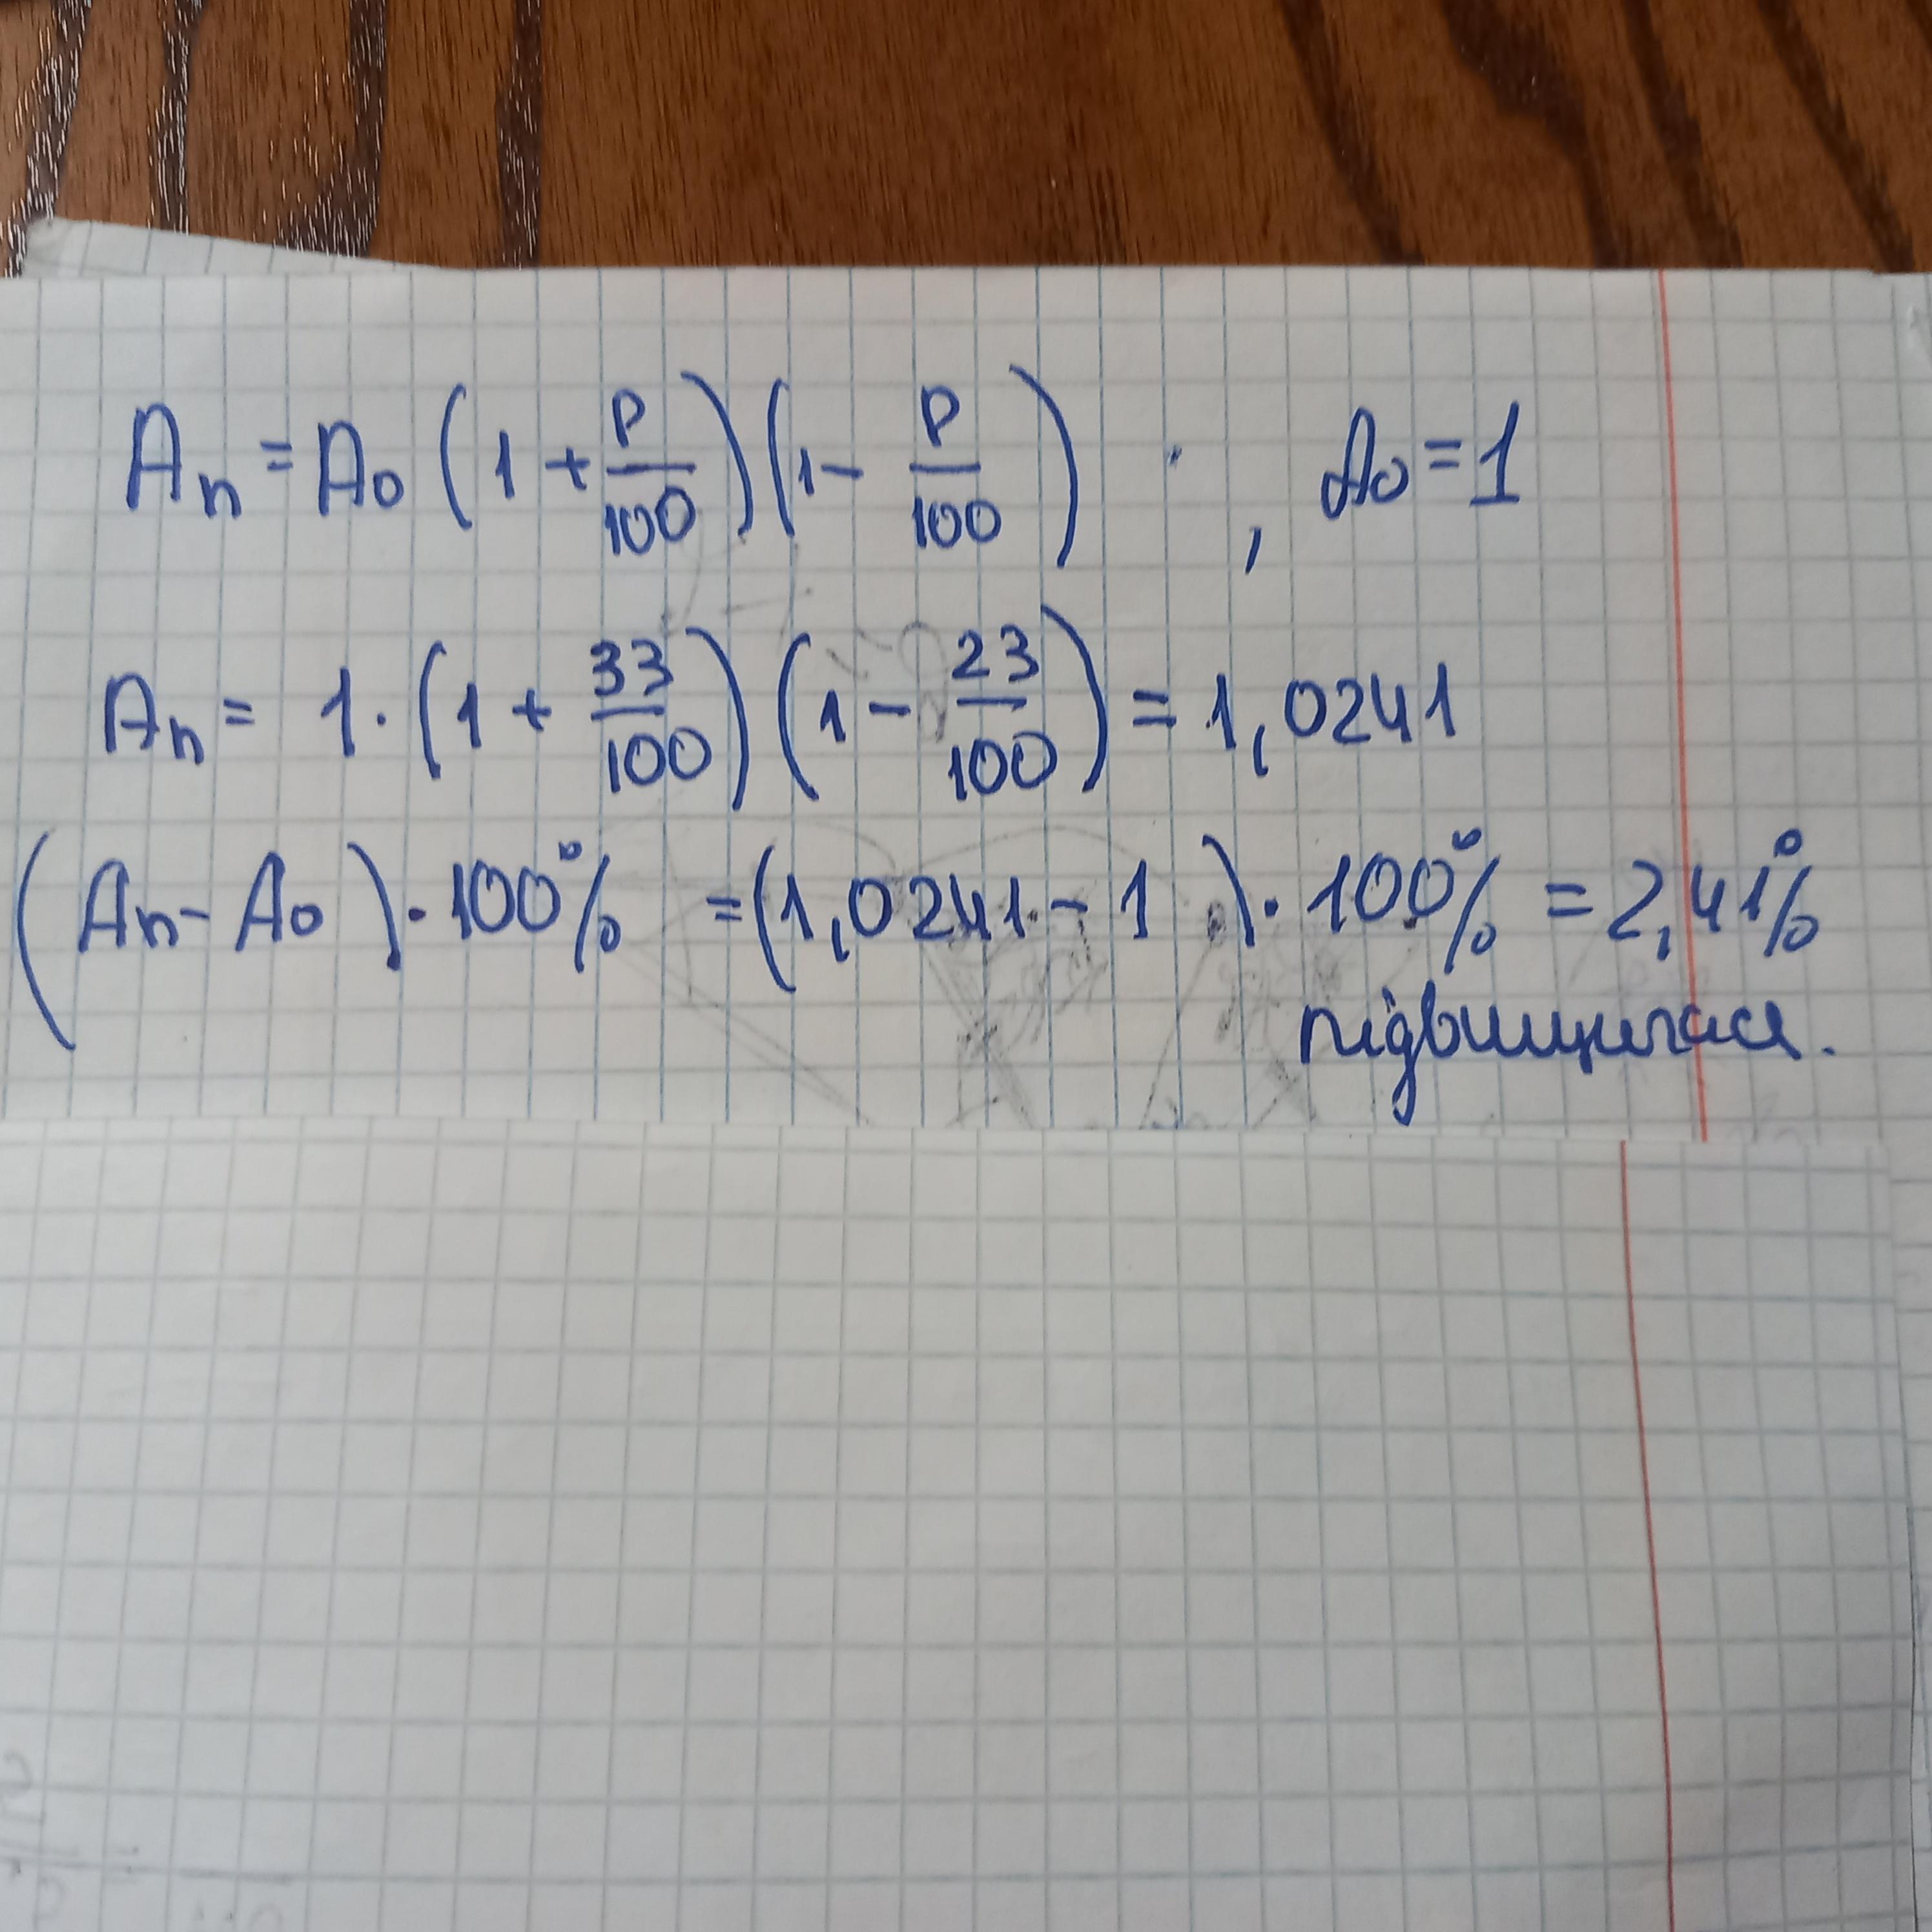 Aₙ = A₀ (1 + P/100)(1 - P/100) , A₀ = 1
Aₙ = 1 · (1 + 33/100)(1 - 23/100) = 1,0241
(Aₙ - A₀) · 100% = (1,0241 - 1) · 100% = 2,41%
підвищилася.